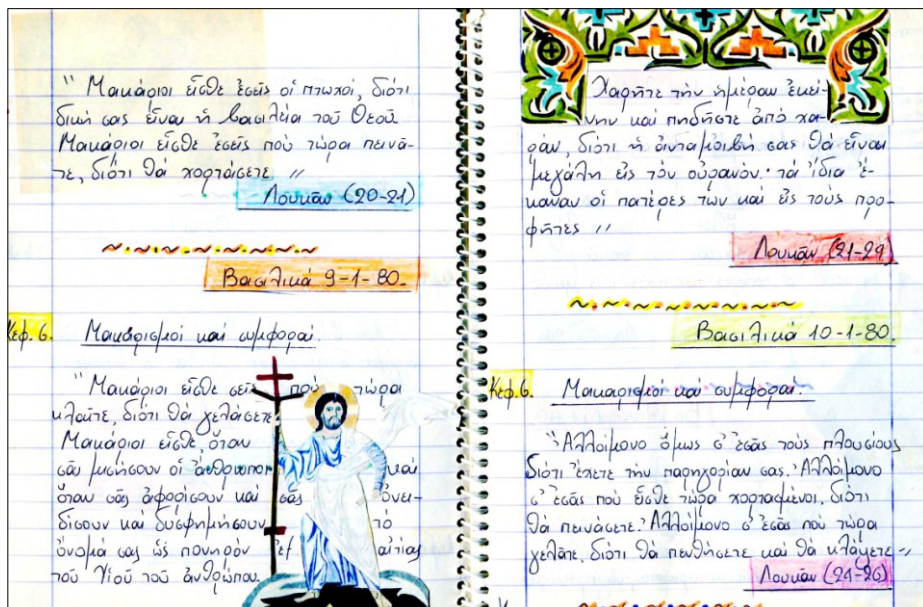 "Μακάριοι εἶσθε ἐσεῖς οἱ πτωχοί, διότι
δική σας εἶναι ἡ βασιλεία τοῦ Θεοῦ.
Μακάριοι εἶσθε ἐσεῖς ποὺ τώρα πεινᾶ-
τε, διότι θὰ χορτάσετε "
Λουκᾶν (20-21)
Βασιλικά 9-1-80.
Κεφ. 6. Μακαρισμοί καί συμφοραί.
"Μακάριοι εἶσθε σεῖς ποὺ τώρα
κλαῖτε, διότι θὰ γελάσετε
Μακάριοι εἶσθε ὅταν
σᾶς μισήσουν οἱ ἄνθρωποι καί
ὅταν σᾶς ἀφορίσουν καί σᾶς ὀνει-
δίσουν καί δυσφημήσουν τό
ὄνομά σας ὡς πονηρόν ἐξ αἰτίας
τοῦ Υἱοῦ τοῦ ἀνθρώπου.
Χαρῆτε τήν ἡμέραν ἐκεί-
νην καί πηδήστε ἀπό χα-
ράν, διότι ἡ ἀνταμοιβή σας θά εἶναι
μεγάλη εἰς τόν οὐρανόν· τά ἴδια ἔ-
καναν οἱ πατέρες των καί εἰς τούς προ-
φῆτες "
Λουκᾶν (21-24)
Βασιλικά 10-1-80.
Κεφ. 6. Μακαρισμοί καί συμφοραί.
"Ἀλλοίμονο ὅμως σ' ἐσᾶς τούς πλουσίους
διότι ἔχετε τήν παρηγορίαν σας. Ἀλλοίμονο
σ' ἐσᾶς πού εἶσθε τώρα χορτασμένοι, διότι
θά πεινάσετε. Ἀλλοίμονο σ' ἐσᾶς πού τώρα
γελᾶτε, διότι θά πενθήσετε καί θά κλάψετε "
Λουκᾶν (24-26)